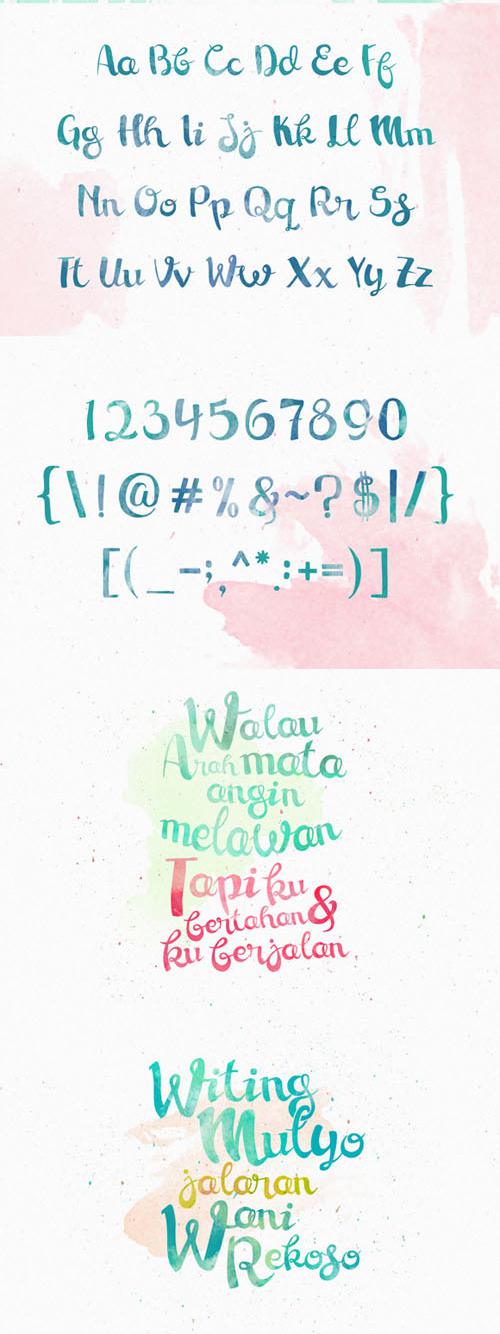 Aa Bb Cc Dd Ee Ff
Gg Hh Ii Jj Kk Ll Mm
Nn Oo Pp Qq Rr Ss
Tt Uu Vv Ww Xx Yy Zz
1234567890
{\!@#%&~?$|/}
[(_-;,^*.:+=)]
Walau
Arah mata
angin
melawan
Tapi ku
bertahan &
ku berjalan
Witing
Mulyo
jalaran
Wani
Rekoso